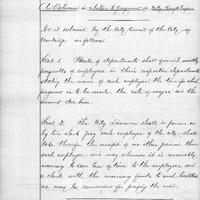 An Ordinance in relation to payment of City Employees
Be it ordained by the City Council of the City of
Cambridge as follows:
Sect. 1. Heads of departments shall furnish weekly
payrolls of employees in their respective departments
stating the name of each employee, the time for which
payment is to be made, the rate of wages and the
amount due him.
Sect. 2. The City Treasurer shall in person or
by his clerk pay each employee of the city, shall
take therefor the receipt of no other person than
such employee, and may whenever it is reasonably
necessary to save loss of time to the employees, send
a clerk with the necessary funds to such localities
as may be convenient for paying the same.